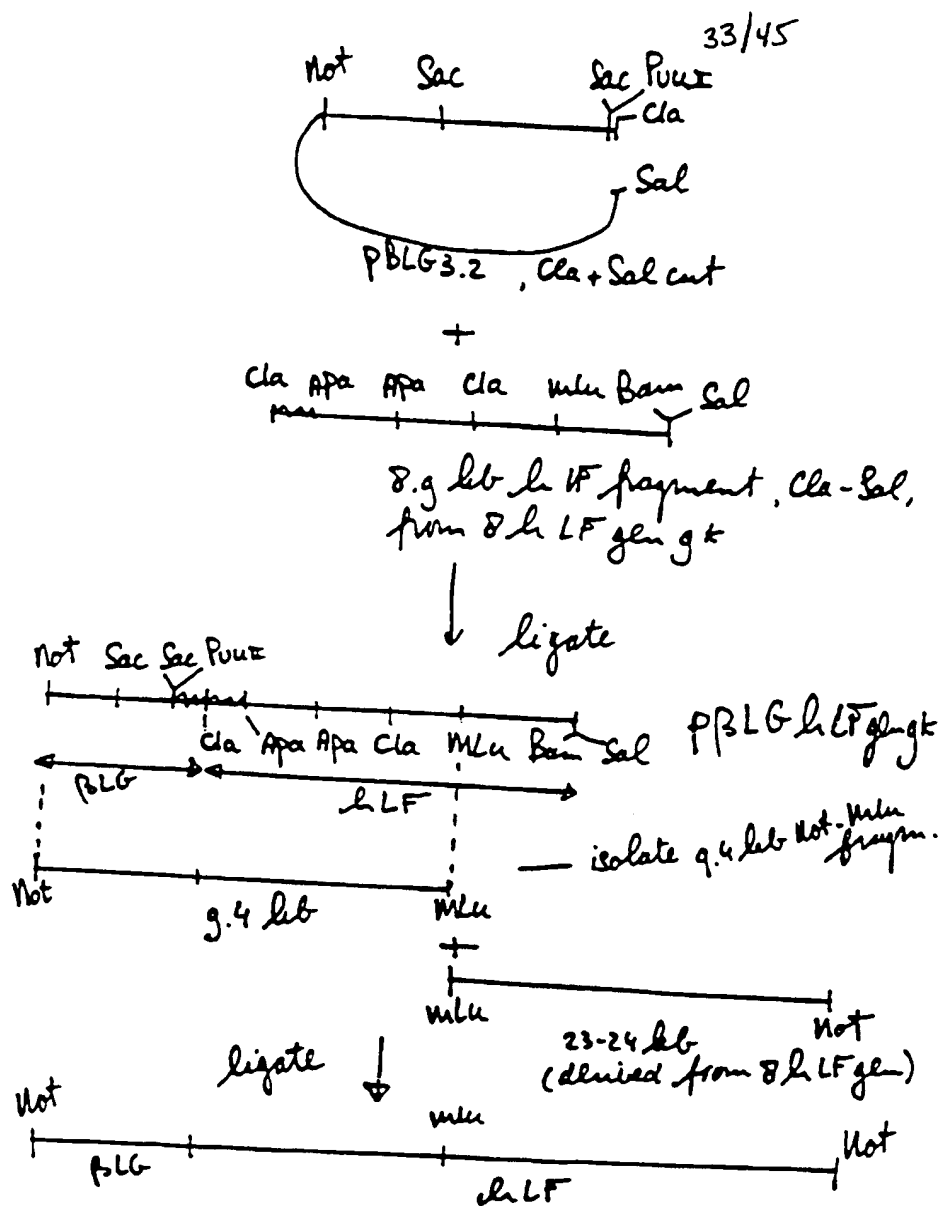 33/45
Not Sac Sac PvuII
Cla
Sal
pBLG3.2 , Cla + Sal cut
+
Cla Apa Apa Cla Mlu Bam Sal
8.9 kb hLF fragment, Cla-Sal,
from 8 hLF gen 9k
ligate
Not Sac Sac PvuII
Cla Apa Apa Cla MLu Bam Sal pβLG hLF gen 9k
βLG hLF
— isolate 9.4 kb Not-Mlu
fragm.
Not 9.4 kb MLu
+
MLu Not
23-24 kb
(derived from 8 hLF gen)
ligate
Not Mlu Not
βLG hLF